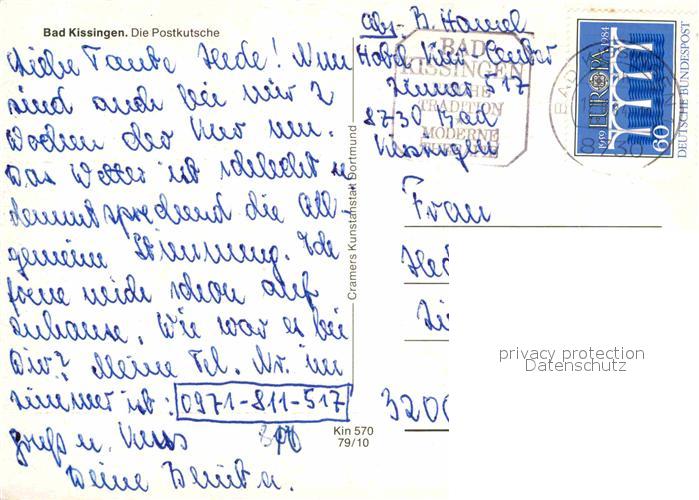 Bad Kissingen. Die Postkutsche
Liebe Tante Hede! Nun
sind auch bei mir 2
Wochen der Kur um.
Das Wetter ist schlecht u.
dementsprechend die All-
gemeine Stimmung. Ich
freue mich schon auf
zuhause. Wie war es bei
Dir? Meine Tel. Nr. im
Zimmer ist: 0971-811-517
Gruß u. Kuss
Deine
Cramers Kunstanstalt Dortmund
Kin 570
79/10
Abs. B. Hamel
Hotel Kur Center
Zimmer 517
8730 Bad
Kissingen
BAD
KISSINGEN
TRADITION
MODERNE
BAD
EUROPA
1959 1984
60
DEUTSCHE BUNDESPOST
Frau
Hed
320
privacy protection
Datenschutz